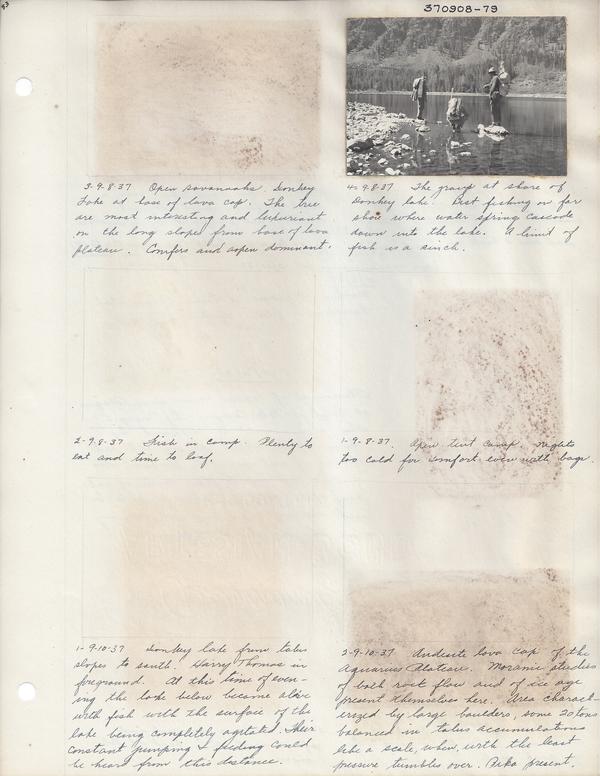 43
370908-79
3-9.8.37 Open savannahs. Donkey
Lake at base of lava cap. The tree
are most interesting and luxuriant
on the long slopes from base of lava
plateau. Conifers and aspen dominant.
4-9.8.37 The group at shore of
Donkey lake. Best fishing on far
shore where water spring cascade
down into the lake. A limit of
fish is a cinch.
2-9.8-37 Fish in camp. Plenty to
eat and time to loaf.
1-9.8-37. Open tent camp. Nights
too cold for comfort even with bags.
1-9-10-37 Donkey lake from talus
slopes to south. Harry Thomas in
foreground. At this time of even-
ing the lake below became alive
with fish with the surface of the
lake being completely agitated. Their
constant jumping & feeding could
be hear from this distance.
2-9-10-37 Andesite lava cap of the
Aquarius Plateau. Morainic studies
of both rock flow and of ice age
present themselves here. Area charact-
erized by large boulders, some 20 tons
balanced in talus accumulations
like a scale, when, with the least
pressure tumbles over. Pika present.